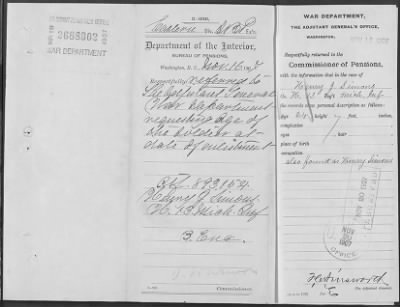 2668002
WAR DEPARTMENT
Eastern Div. Ex'r.
Department of the Interior,
BUREAU OF PENSIONS,
Washington, D. C., Nov. 16, 190
Respectfully referred to
the Adjutant General
War Department
requesting age of
the soldier at
date of enlistment
893,154
Henry J Simons
H. 13 Mich Inf
3. Encs.
Commissioner.
WAR DEPARTMENT,
THE ADJUTANT GENERAL'S OFFICE,
WASHINGTON,
Respectfully returned to the
Commissioner of Pensions,
with the information that in the case of
Henry J. Simons
Co. H, 13 Reg't Mich. Inf
the records show personal description as follows:
age height feet, inches,
complexion
eyes hair
place of birth
occupation
also found as Henry Simons
OFFICE
F. C. Ainsworth